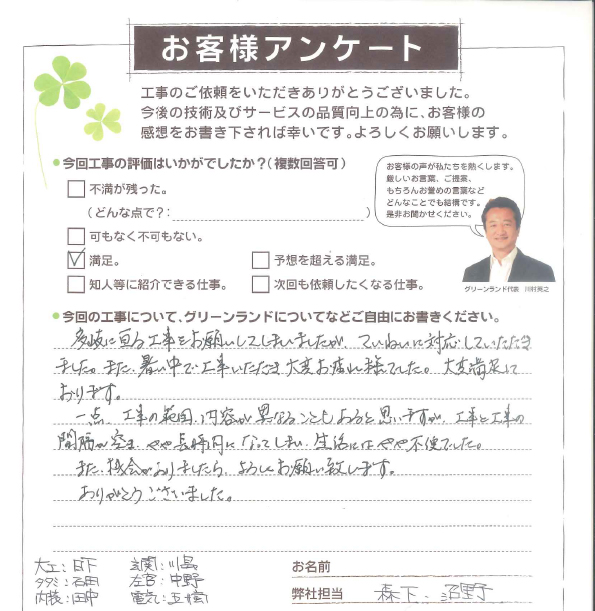 お客様アンケート
工事のご依頼をいただきありがとうございました。
今後の技術及びサービスの品質向上の為に、お客様の
感想をお書き下されば幸いです。よろしくお願いします。
今回工事の評価はいかがでしたか？(複数回答可)
不満が残った。
(どんな点で？: )
可もなく不可もない。
満足。
予想を超える満足。
知人等に紹介できる仕事。
次回も依頼したくなる仕事。
お客様の声が私たちを熱くします。
厳しいお言葉、ご提案、
もちろんお誉めの言葉など
どんなことでも結構です。
是非お聞かせください。
グリーンランド代表
今回の工事について、グリーンランドについてなどご自由にお書きください。
多岐に亘る工事をお願いしてしまいましたが、ていねいに対応していただき
ました。また、暑い中で工事いただき大変お疲れ様でした。大変満足して
おります。
一点、工事の範囲、内容が異なることもあると思いますが、工事と工事の
間隔が空き、やや長時間になってしまい、生活にはやや不便でした。
また、機会がありましたら、よろしくお願い致します。
ありがとうございました。
大工：日下 玄関：川島
タタミ：石田 左官：中野
内装：田中 電気：
お名前
弊社担当 森下、沼野